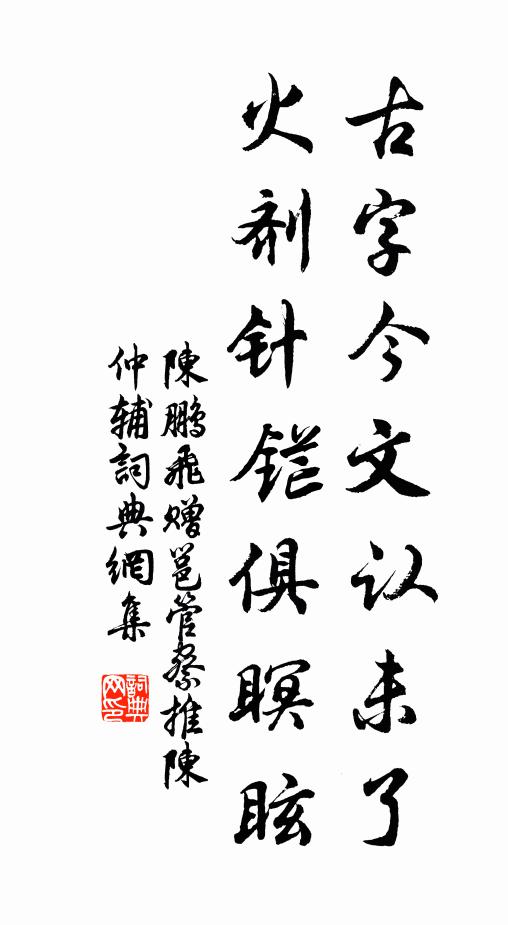 古字今文认未了
火剂针铓俱瞑眩
陳鵬飛赠邕管察推陳
仲辅詞典網集
詞典网印